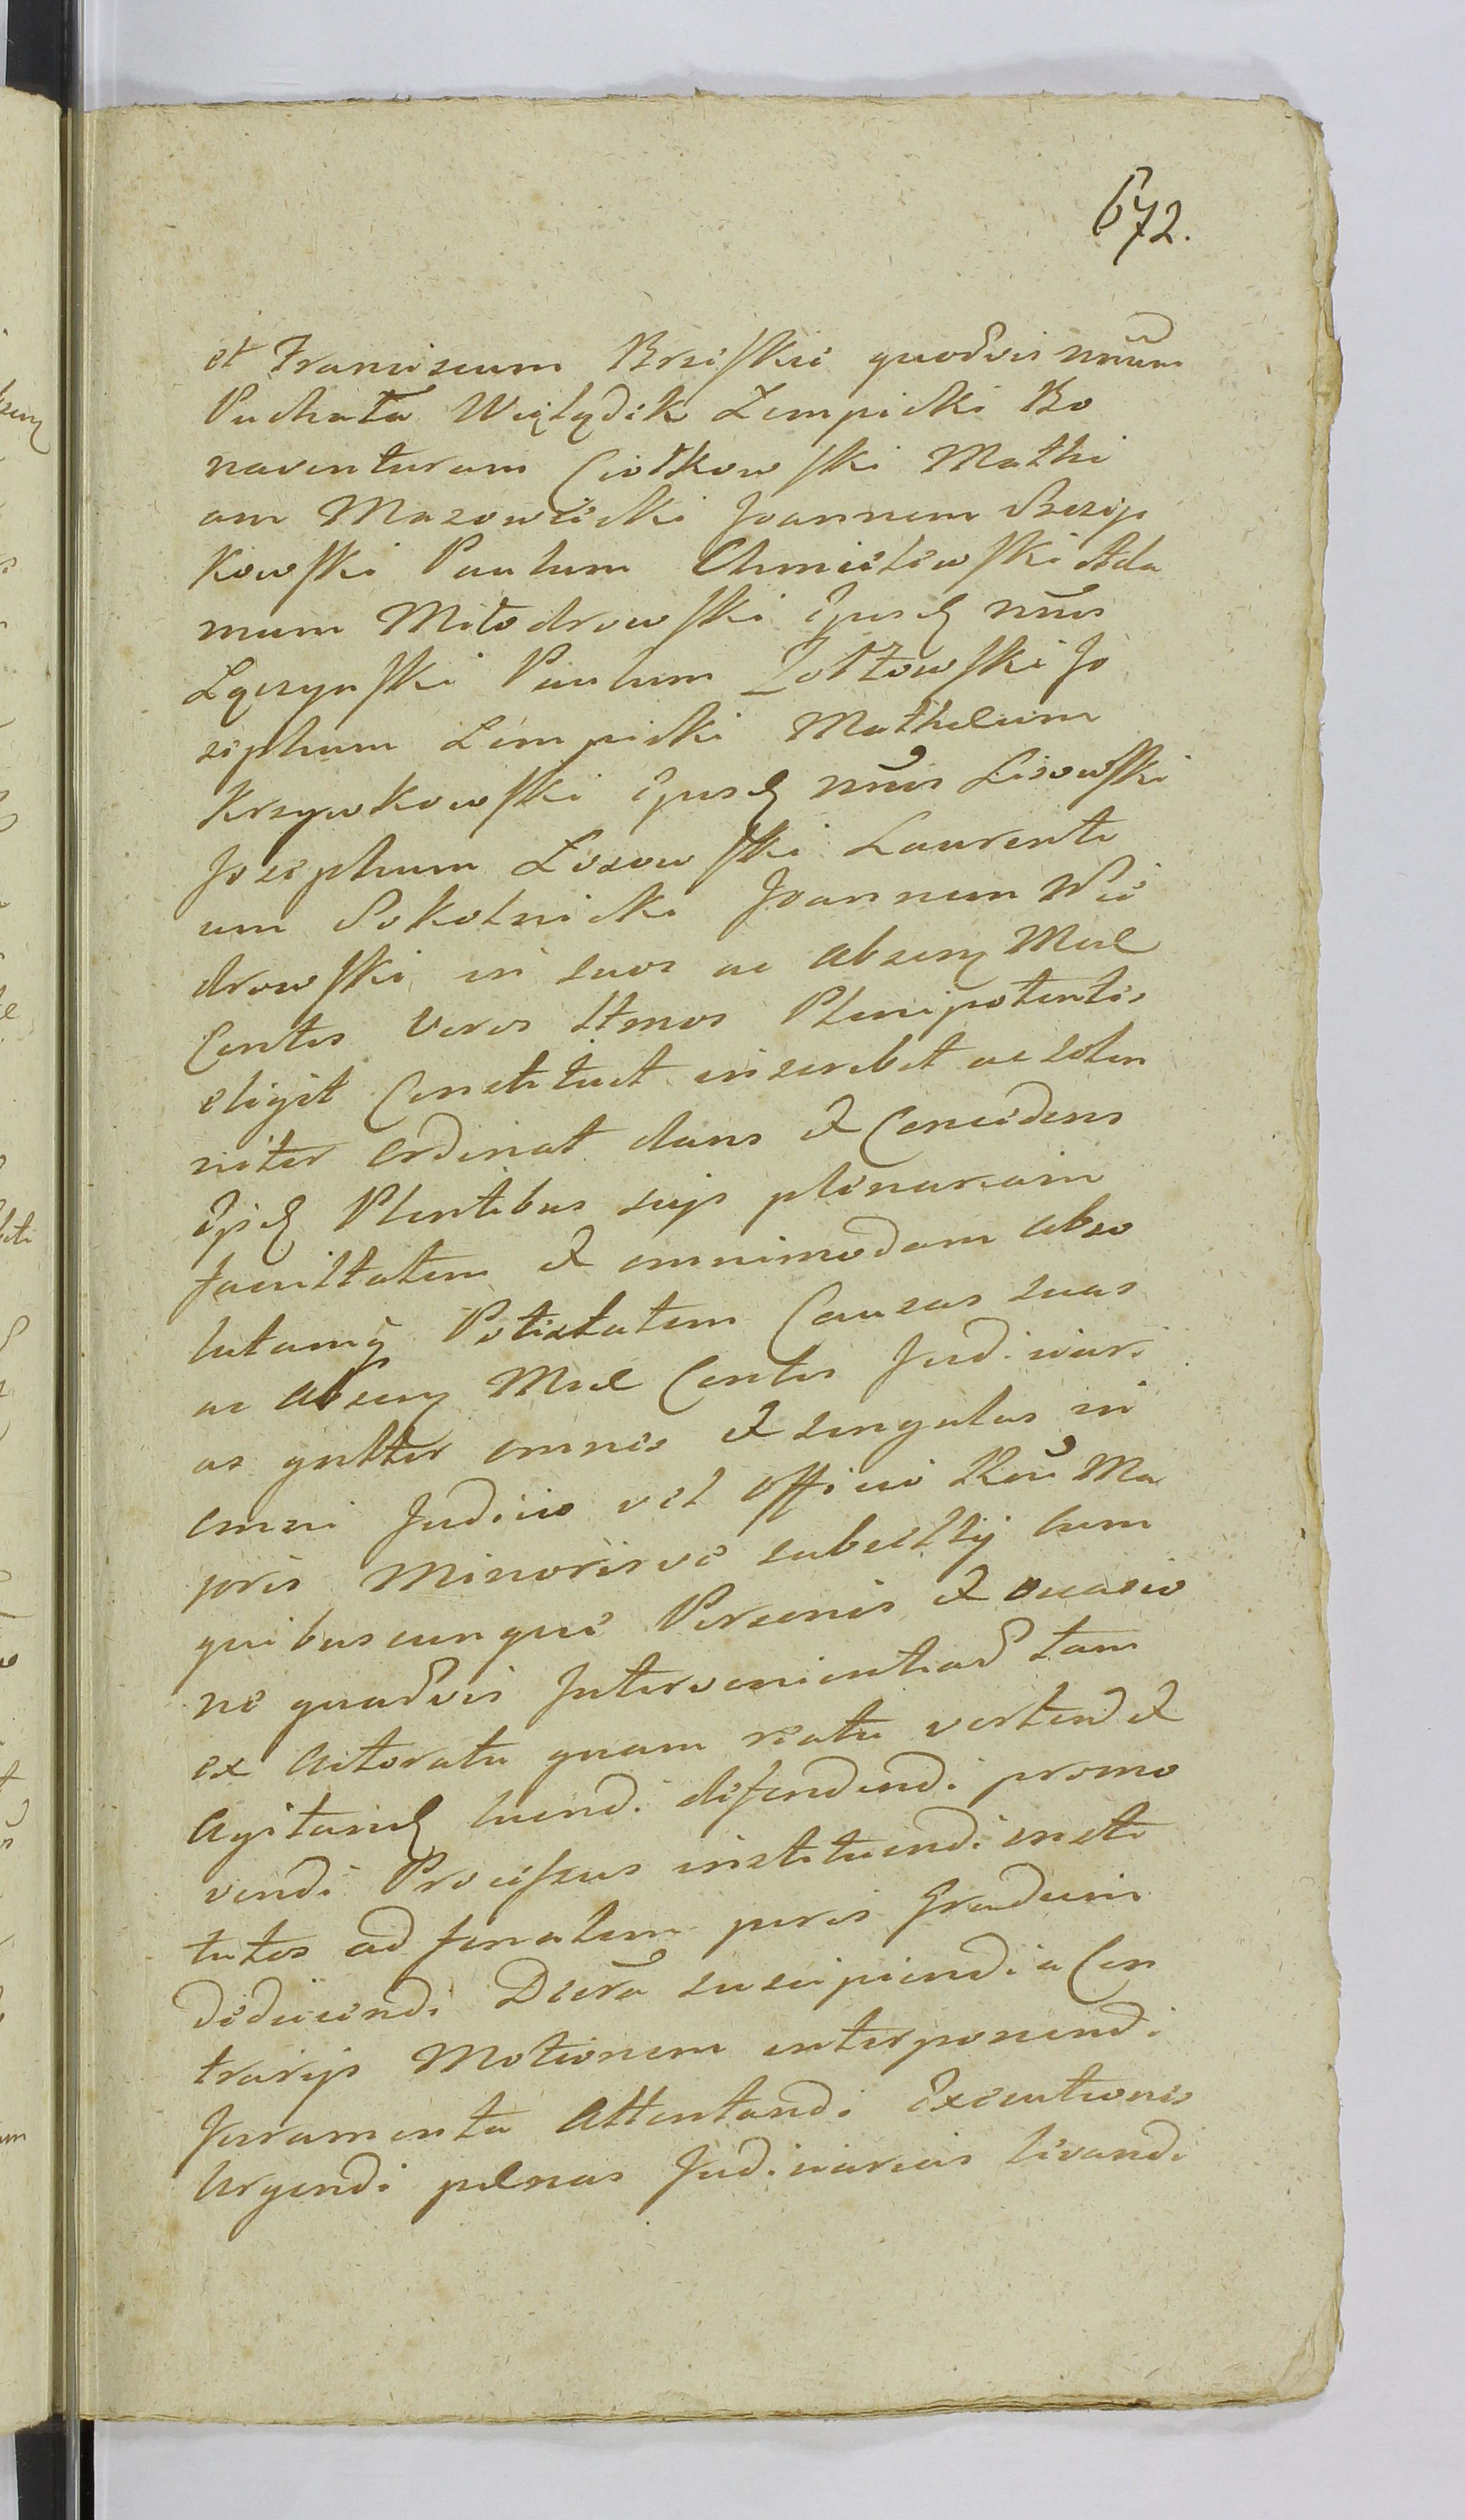 672.
et Franciscum Brzeski quodvis nnūm
Puchała Więządzk Łempicki Bo
naventuram Ciołkowski Mathi
am Mazowiecki Joannem Szczep
kowski Paulum Chmielewski Ada
mum Miłodrowski Ejusd nn̄is
Łączynski Paulum Żołtowski Jo
sephum Łempicki Matheum
Krzywkowski Ejusd nn̄is Lisowski
Josephum Łosowski Laurenti
um Sokolnicki Joannem Wio
drowski in suos ac absen Mul
Contis veros Ltmos Plenipotentes
eligit Constituit inscribit ac solen
niter ordinat dans et Concedens
Ijsd Plentibus suis plenariam
facultatem et omnimodam abso
lutamq Potestatem Causas suas
ac absen Mul Contis Judiciari
as gnltter omnes et singulas in
omni Judicio vel Officio Rēn Ma
joris Minorisve subselij cum
quibuscunque Personis et occasio
ne quadvis Intervenientiad tam
ex Actoratu quam reatu vertend et
Agitand luendi defendendi promo
vendi Processus instituendi insti
tutos ad finalem juris Gradum
deducendi Dcrā suscipiendi a Con
trarijs Motionem interponendi
Juramenta Attentandi Executiones
Urgendi pænas Judiciarias levandi